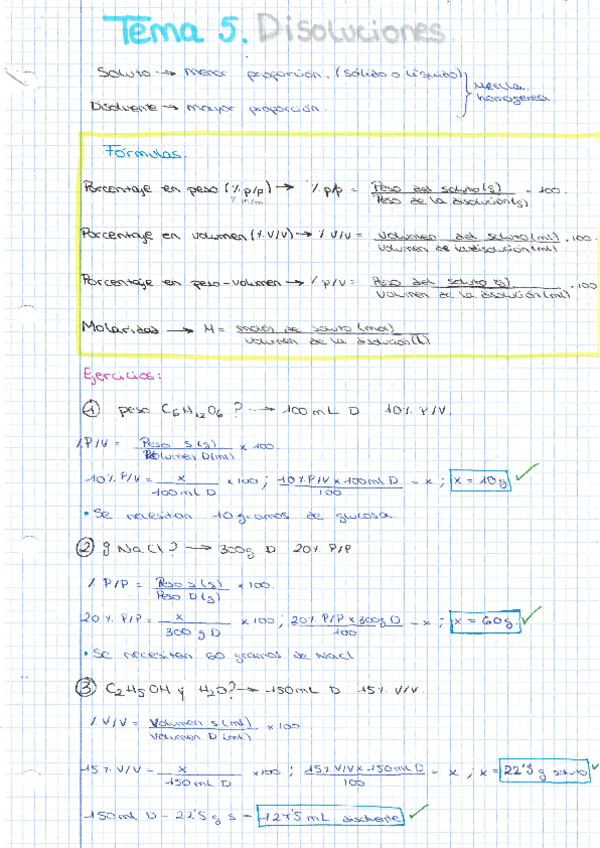 Tema 5. Disoluciones.
Soluto → menor proporción. (sólido o líquido) } Mezcla homogénea
Disolvente → mayor proporción.
Fórmulas.
Porcentaje en peso (% p/p) → % p/p = Peso del soluto (g) / Peso de la disolución (g) · 100.
% m/m
Porcentaje en volumen (% V/V) → % V/V = Volumen del soluto (ml) / Volumen de la disolución (ml) · 100
Porcentaje en peso-volumen → % p/V = Peso del soluto (g) / Volumen de la disolución (ml) · 100
Molaridad → M = moles de soluto (mol) / volumen de la disolución (L)
Ejercicios:
① peso C6H12O6 ? → 100 mL D 10% P/V.
% P/V = Peso s (g) / Volumen D (ml) × 100.
10% P/V = x / 100 mL D × 100 ; 10% P/V × 100 mL D / 100 = x ; x = 10 g ✓
• Se necesitan 10 gramos de glucosa.
② g NaCl ? → 300g D 20% P/P
% P/P = Peso s (g) / Peso D (g) × 100.
20% P/P = x / 300 g D × 100 ; 20% P/P × 300g D / 100 = x ; x = 60g ✓
• Se necesitan 60 gramos de NaCl
③ C2H5OH y H2O? → 150 mL D 15% V/V.
% V/V = Volumen s (ml) / Volumen D (ml) × 100
15% V/V = x / 150 mL D × 100 ; 15% V/V × 150 mL D / 100 = x ; x = 22'5 g soluto ✓
150 ml D - 22'5 g s = 127'5 mL disolvente ✓